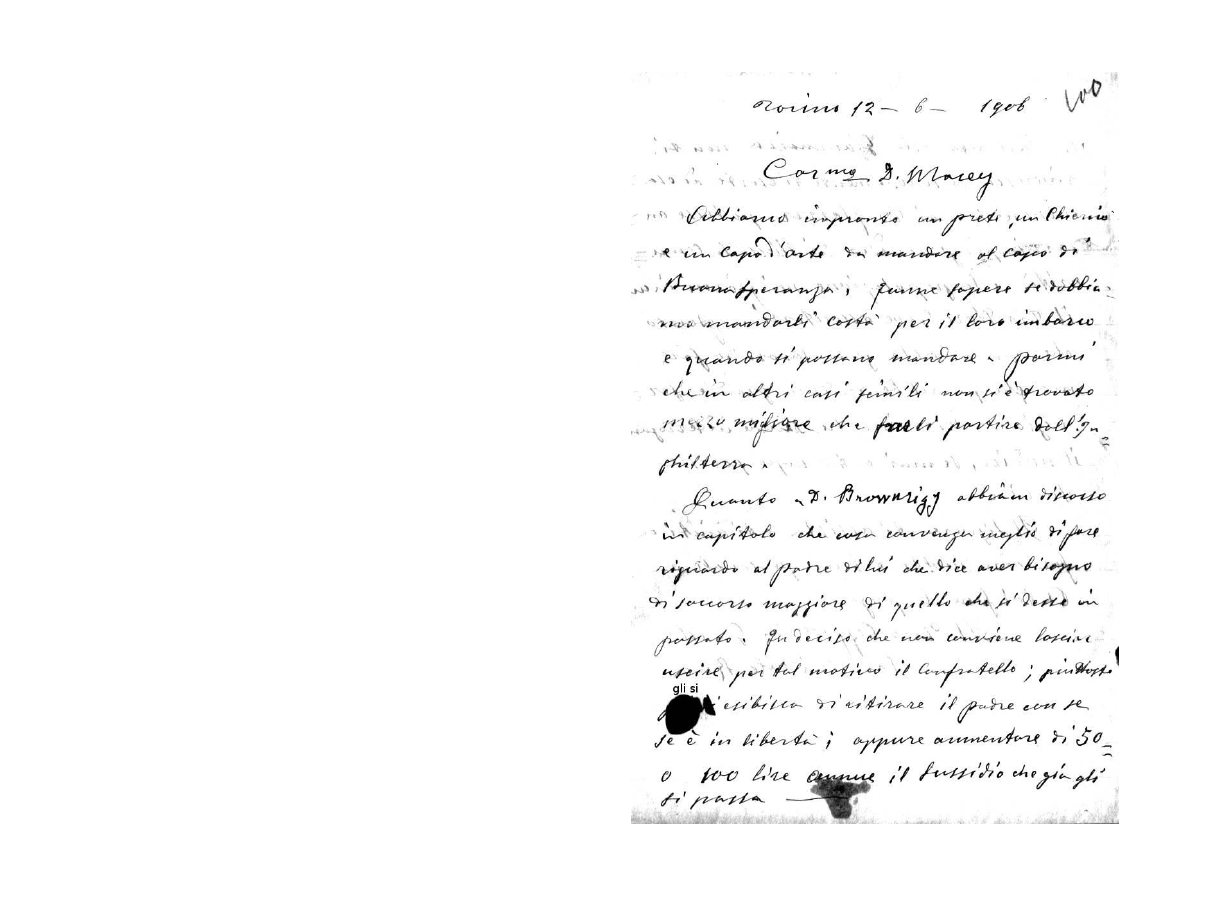 Torino 12 – 6 – 1906
100
Car mo D. Macey
Abbiamo impronto un prete, un Chierico
e un Capo d'arte da mandare al capo di
Buona Speranza. fanne sapere se dobbia-
mo mandarli costà per il loro imbarco
e quando si possano mandare. parmi
che in altri casi simili non si è trovato
mezzo migliore che farli partire dall'In=
ghilterra.
Quanto a D. Brownrigg abbiam discorso
in capitolo che cosa convenga meglio di fare
riguardo al padre di lui che dice aver bisogno
di soccorso maggiore di quello che si desse in
passato. Fu deciso che non conviene lasciar
uscire per tal motivo il Confratello; piuttosto
gli si
esibisca di ritirare il padre con se
se è in libertà; oppure aumentare di 50=
o 100 lire annue il sussidio che già gli
si passa —